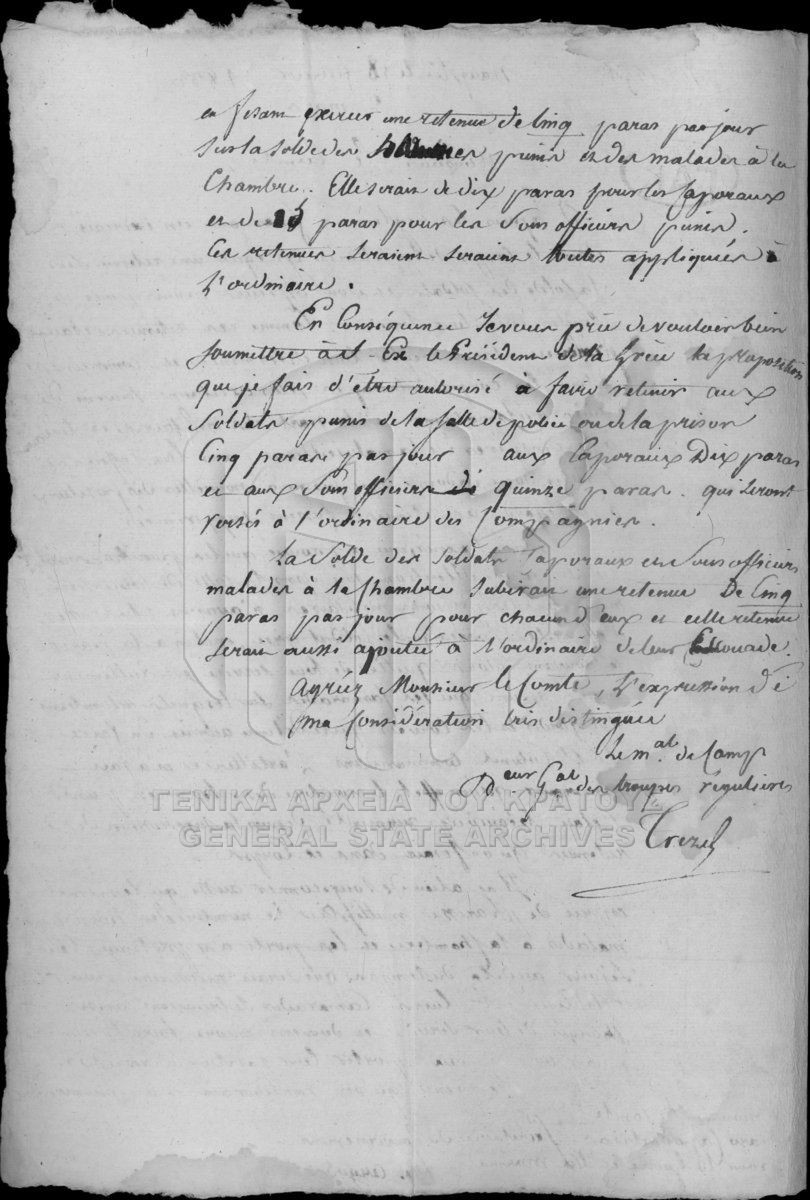 en fesant exercer une retenue de Cinq paras par jour
sur la solde des hommes punis et des malades à la
Chambre. Elle serait de dix paras pour les Caporaux
et de 15 paras pour les Sous officiers punis.
Ces retenues seraient seraient toutes appliquées à
l'ordinaire.
En Conséquence Je vous prie de vouloir bien
soumettre à S. Ex. le Président de la Grèce la proposition
que je fais d'être autorisé à faire retenir aux
Soldats punis de la salle de police ou de la prison
Cinq paras par jour aux Caporaux Dix paras
et aux Sous officiers de quinze paras. qui seront
versés à l'ordinaire des Compagnies.
La Solde des Soldats Caporaux et Sous officiers
malades à la Chambre subirait une retenue De Cinq
paras par jour pour chacun d'eux et cette retenue
serait aussi ajoutée à l'ordinaire de leur Escouade.
Agréez Monsieur le Comte, l'expression de
ma Considération très distinguée
Le mal. de Camp
Deur Gal des troupes régulieres
Trezel
ΓΕΝΙΚΑ ΑΡΧΕΙΑ ΤΟΥ ΚΡΑΤΟΥΣ
GENERAL STATE ARCHIVES